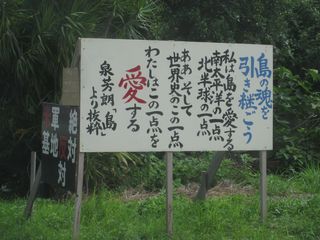 島の魂を
引き継ごう
私は島を愛する
南太平洋の一点
北半球の一点
ああ そして
世界史のこの一点
わたしはこの一点を
愛する
泉芳朗「島」
より抜粋
絶対
反対
軍
基地